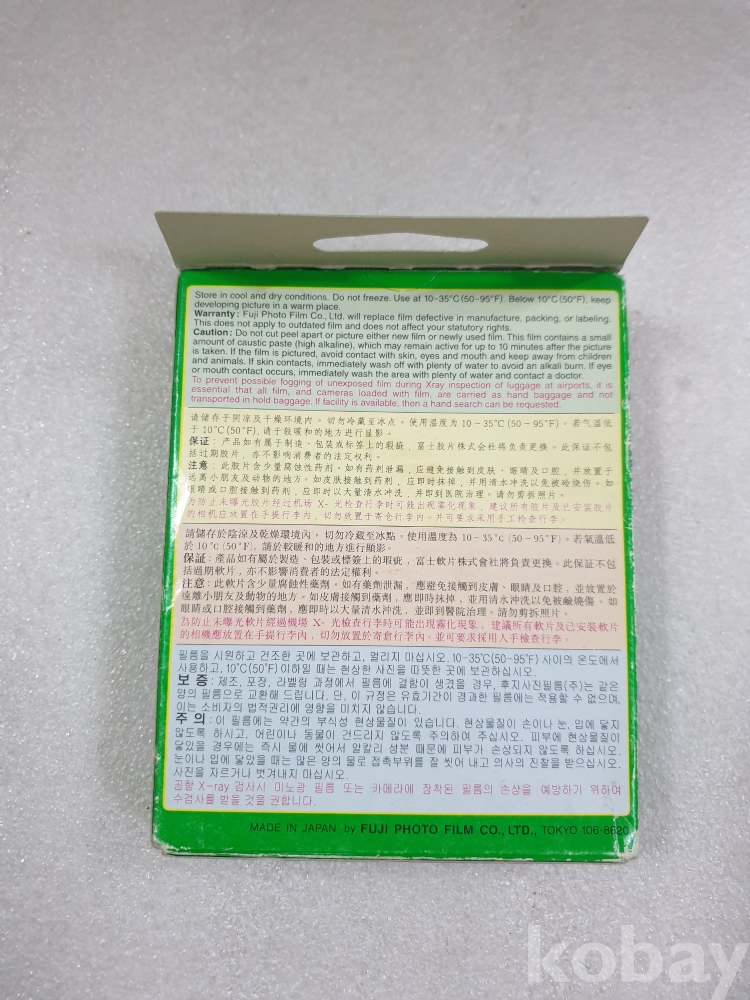 Store in cool and dry conditions. Do not freeze. Use at 10–35°C(50–95°F). Below 10°C(50°F), keep
developing picture in a warm place.
Warranty: Fuji Photo Film Co., Ltd. will replace film defective in manufacture, packing, or labeling.
This does not apply to outdated film and does not affect your statutory rights.
Caution: Do not cut peel apart or picture either new film or newly used film. This film contains a small
amount of caustic paste (high alkaline), which may remain active for up to 10 minutes after the picture
is taken. If the film is pictured, avoid contact with skin, eyes and mouth and keep away from children
and animals. If skin contacts, immediately wash off with plenty of water to avoid an alkali burn. If eye
or mouth contact occurs, immediately wash the area with plenty of water and contact a doctor.
To prevent possible fogging of unexposed film during Xray inspection of luggage at airports, it is
essential that all film, and cameras loaded with film, are carried as hand baggage and not
transported in hold baggage. If facility is available, then a hand search can be requested.
请储存于阴凉及干燥环境内。切勿冷藏至冰点。使用温度为 10－35°C (50－95°F)。若气温低
于 10°C (50°F), 请于较暖和的地方进行显影。
保证：产品如有属于制造、包装或标签上的瑕疵，富士胶片株式会社将负责更换。此保证不包
括过期胶片，亦不影响消费者的法定权利。
注意：此胶片含少量腐蚀性药剂。如有药剂泄漏，应避免接触到皮肤、眼睛及口腔，并放置于
远离小朋友及动物的地方。如皮肤接触到药剂，应即时抹掉，并用清水冲洗以免被硷烧伤。如
眼睛或口腔接触到药剂，应即时以大量清水冲洗，并即到医院治理。请勿剪拆照片。
为防止未曝光胶片经过机场 X- 光检查行李时可能出现雾化现象，建议所有胶片及已安装胶片
的相机应放置在手提行李内，切勿放置于寄仓行李内。并可要求采用手工检查行李。
請儲存於陰涼及乾燥環境內。切勿冷藏至冰點。使用温度為 10－35°c (50－95°F)。若氣温低
於 10°c (50°F), 請於較暖和的地方進行顯影。
保証：產品如有屬於製造、包裝或標簽上的瑕疵，富士軟片株式會社將負責更換。此保証不包
括過期軟片，亦不影響消費者的法定權利。
注意：此軟片含少量腐蝕性藥劑。如有藥劑泄漏，應避免接觸到皮膚、眼睛及口腔，並放置於
遠離小朋友及動物的地方。如皮膚接觸到藥劑，應即時抹掉，並用清水沖洗以免被鹼燒傷。如
眼睛或口腔接觸到藥劑，應即時以大量清水沖洗，並即到醫院治理。請勿剪拆照片。
為防止未曝光軟片經過機場 X- 光檢查行李時可能出現霧化現象，建議所有軟片及已安裝軟片
的相機應放置在手提行李內，切勿放置於寄倉行李內。並可要求採用人手檢查行李。
필름을 시원하고 건조한 곳에 보관하고, 얼리지 마십시오. 10-35°C(50-95°F) 사이의 온도에서
사용하고, 10°C(50°F) 이하일 때는 현상한 사진을 따뜻한 곳에 보관하십시오.
보 증 : 제조, 포장, 라벨링 과정에서 필름에 결함이 생겼을 경우, 후지사진필름(주)는 같은
양의 필름으로 교환해 드립니다. 단, 이 규정은 유효기간이 경과한 필름에는 적용할 수 없으며,
이는 소비자의 법적권리에 영향을 미치지 않습니다.
주 의 : 이 필름에는 약간의 부식성 현상물질이 있습니다. 현상물질이 손이나 눈, 입에 닿지
않도록 하시고, 어린이나 동물이 건드리지 않도록 주의하여 주십시오. 피부에 현상물질이
닿았을 경우에는 즉시 물에 씻어서 알칼리 성분 때문에 피부가 손상되지 않도록 하십시오.
눈이나 입에 닿았을 때는 많은 양의 물로 접촉부위를 잘 씻어 내고 의사의 진찰을 받으십시오.
사진을 자르거나 벗겨내지 마십시오.
공항 X-ray 검사시 미노광 필름 또는 카메라에 장착된 필름의 손상을 예방하기 위하여
수검사를 받을 것을 권합니다.
MADE IN JAPAN by FUJI PHOTO FILM CO., LTD., TOKYO 106-8620
kobay